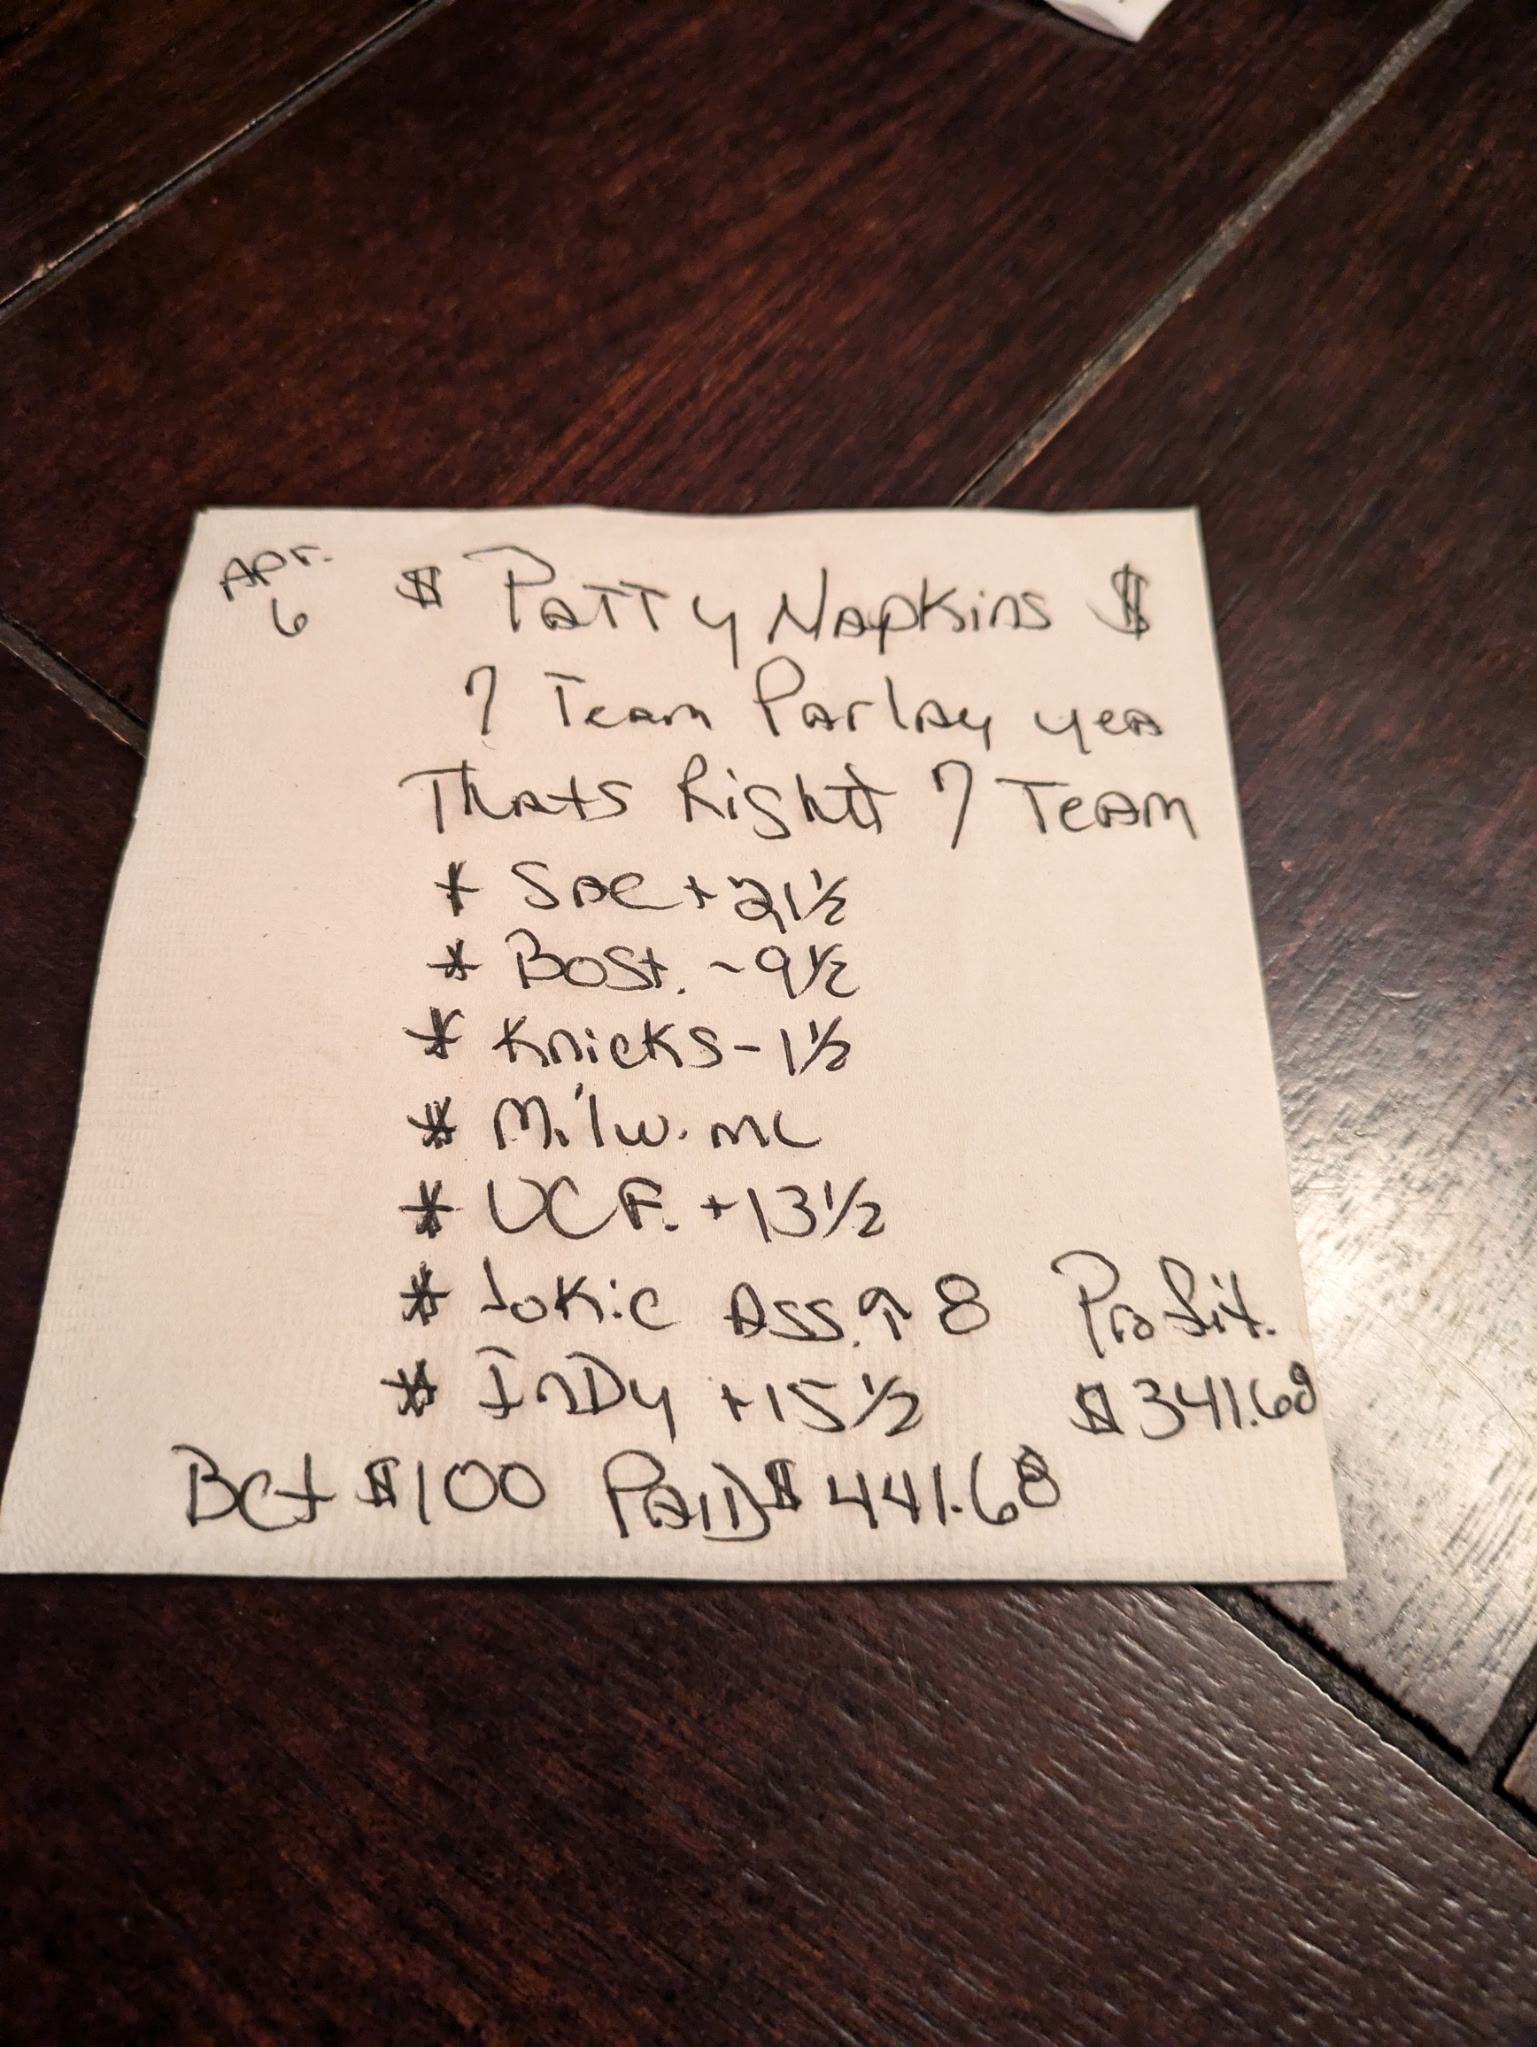 Apr.
6
$ Patty Napkins $
7 Team Parlay yea
Thats Right 7 Team
* Sac + 21 1/2
* Bost. - 9 1/2
* Knicks - 1 1/2
* Milw. ML
* UCF. + 13 1/2
* Jokic Ass. ↑ 8
* Indy + 15 1/2
Profit.
$341.68
Bet $100 Paid $441.68